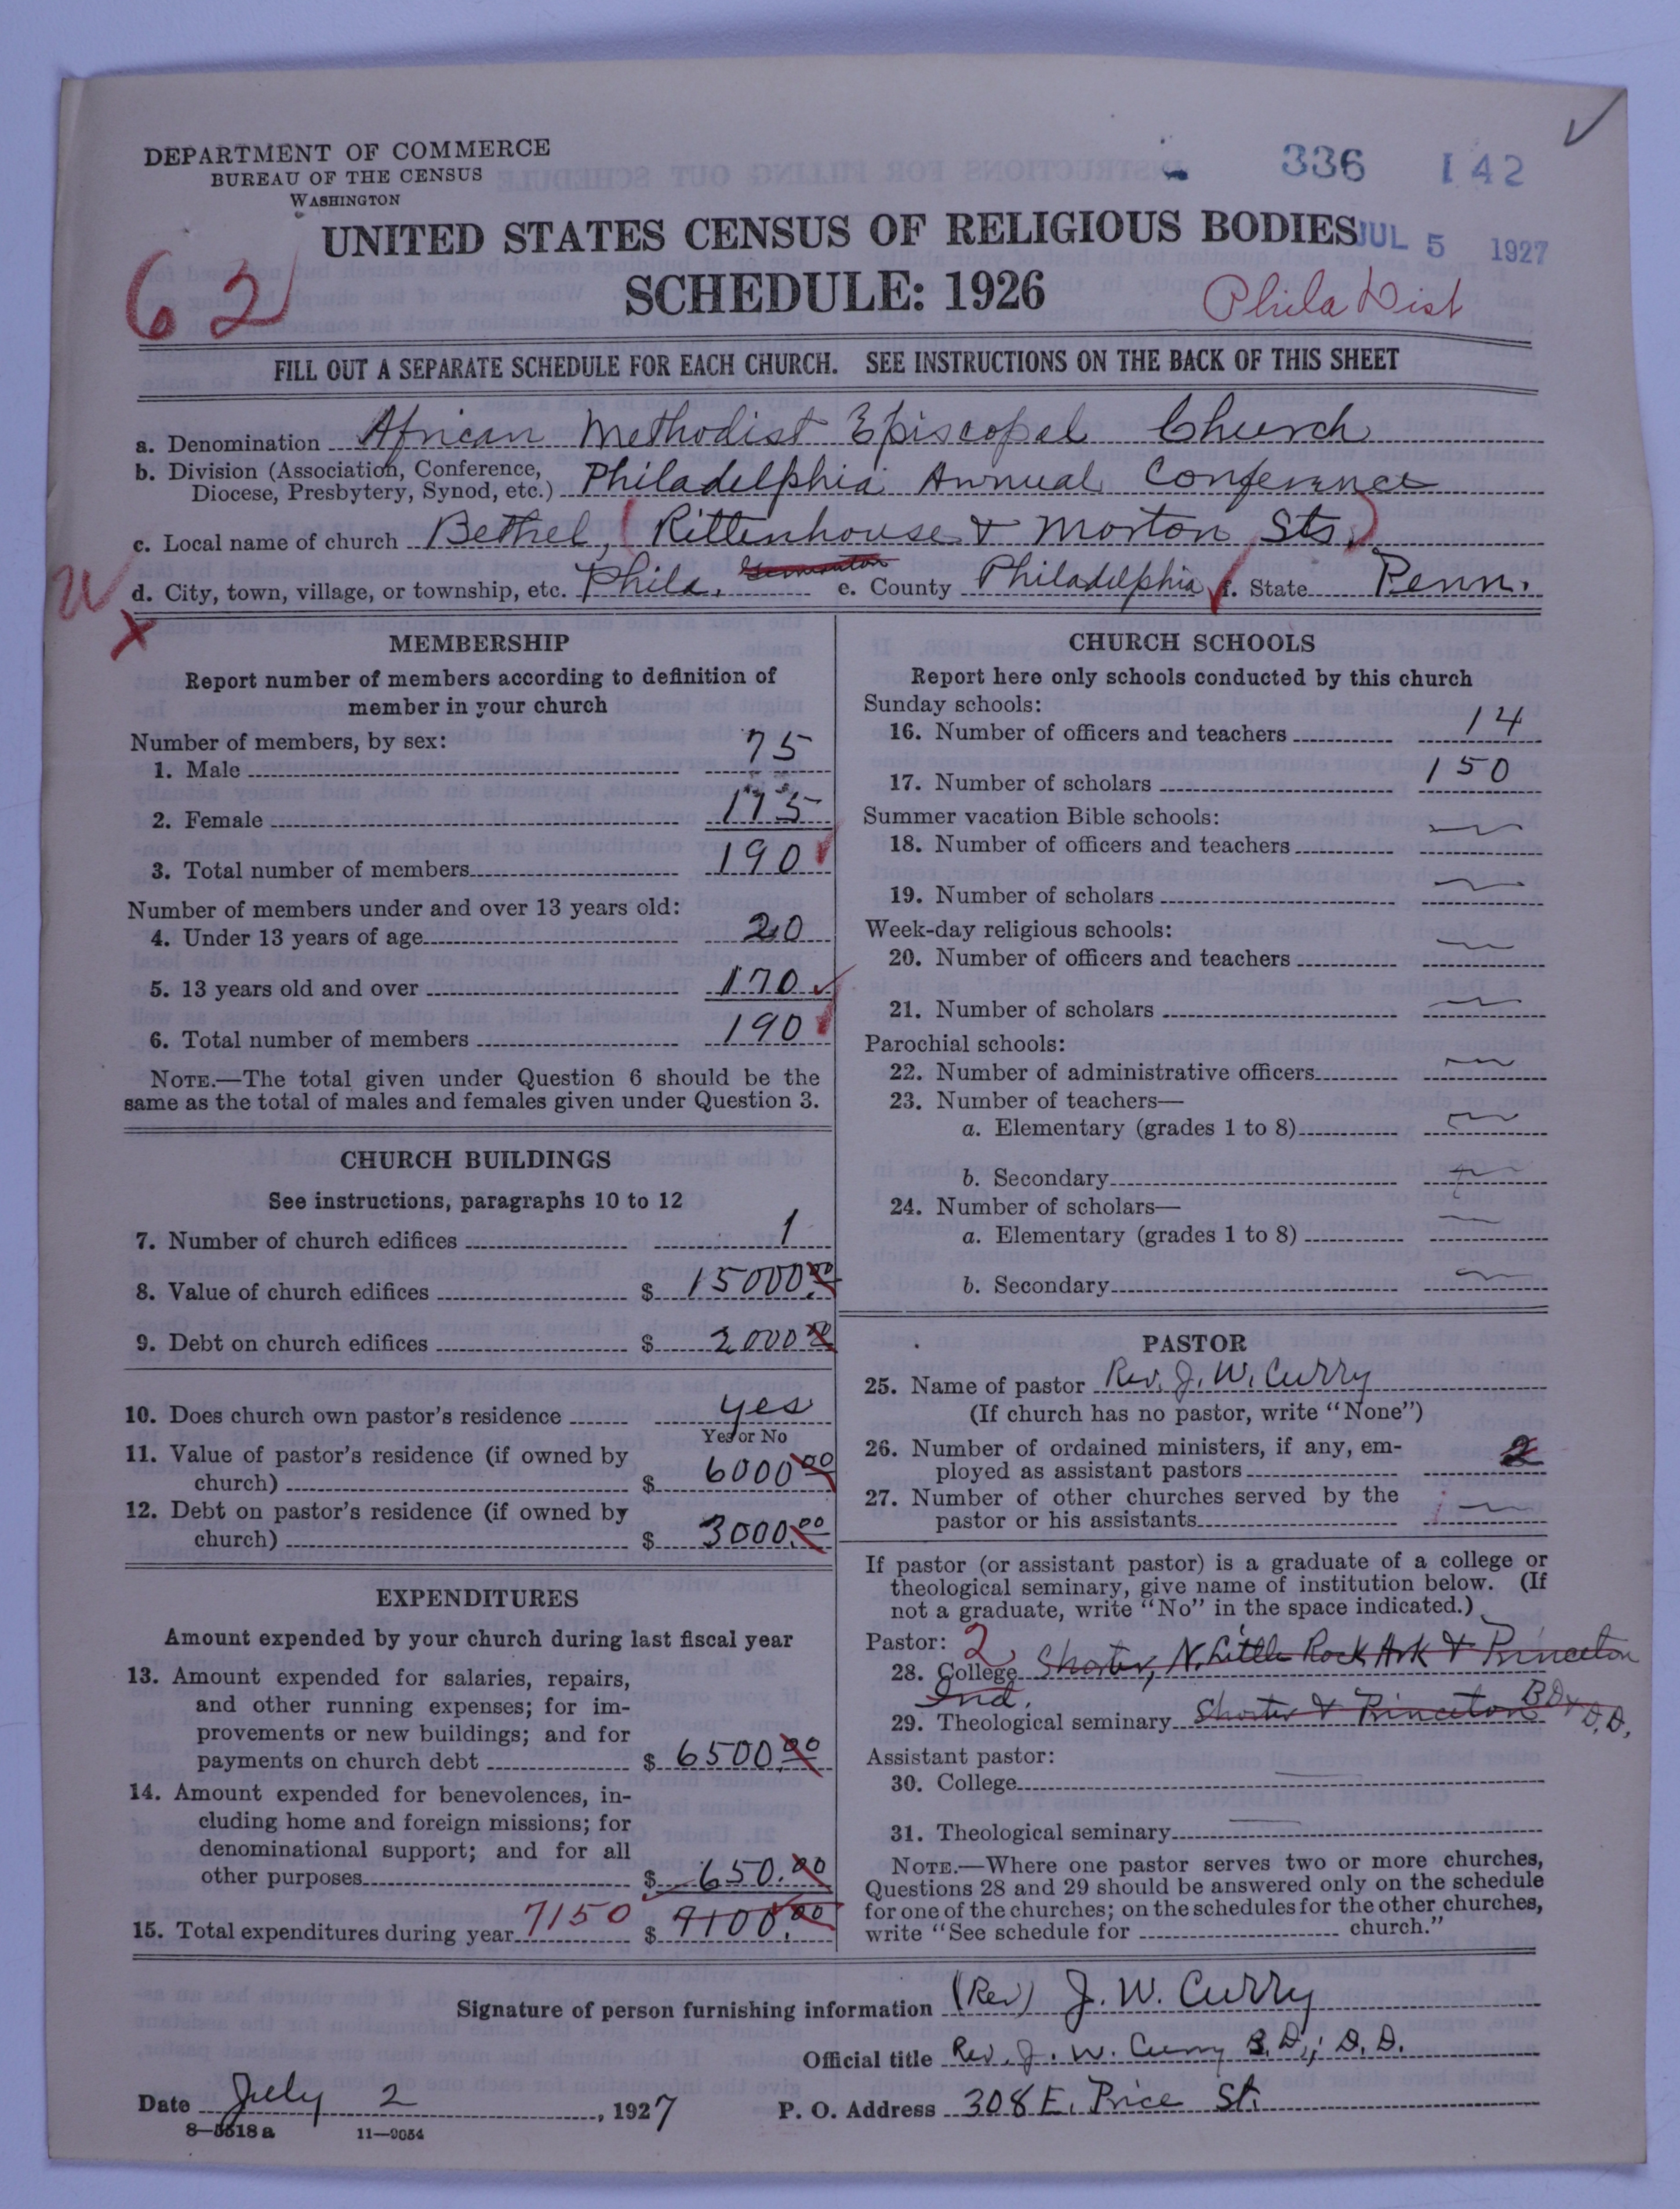 DEPARTMENT OF COMMERCE
BUREAU OF THE CENSUS
WASHINGTON
336 142
UNITED STATES CENSUS OF RELIGIOUS BODIES
JUL 5 1927
62
SCHEDULE: 1926
Phila Dist
FILL OUT A SEPARATE SCHEDULE FOR EACH CHURCH. SEE INSTRUCTIONS ON THE BACK OF THIS SHEET
a. Denomination African Methodist Episcopal Church
b. Division (Association, Conference,
Diocese, Presbytery, Synod, etc.) Philadelphia Annual Conference
c. Local name of church Bethel, (Rittenhouse & Morton Sts.)
d. City, town, village, or township, etc. Phila. e. County Philadelphia f. State Penn.
MEMBERSHIP
Report number of members according to definition of
member in your church
Number of members, by sex:
1. Male 75
2. Female 115
3. Total number of members 190
Number of members under and over 13 years old:
4. Under 13 years of age 20
5. 13 years old and over 170
6. Total number of members 190
NOTE.—The total given under Question 6 should be the
same as the total of males and females given under Question 3.
CHURCH BUILDINGS
See instructions, paragraphs 10 to 12
7. Number of church edifices 1
8. Value of church edifices $ 15000.00
9. Debt on church edifices $ 2000.00
10. Does church own pastor's residence yes
Yes or No
11. Value of pastor's residence (if owned by
church) $ 6000.00
12. Debt on pastor's residence (if owned by
church) $ 3000.00
EXPENDITURES
Amount expended by your church during last fiscal year
13. Amount expended for salaries, repairs,
and other running expenses; for im-
provements or new buildings; and for
payments on church debt $ 6500.00
14. Amount expended for benevolences, in-
cluding home and foreign missions; for
denominational support; and for all
other purposes $ 650.00
15. Total expenditures during year 7150 $ 9100.00
CHURCH SCHOOLS
Report here only schools conducted by this church
Sunday schools:
16. Number of officers and teachers 14
17. Number of scholars 150
Summer vacation Bible schools:
18. Number of officers and teachers
19. Number of scholars
Week-day religious schools:
20. Number of officers and teachers
21. Number of scholars
Parochial schools:
22. Number of administrative officers
23. Number of teachers—
a. Elementary (grades 1 to 8)
b. Secondary
24. Number of scholars—
a. Elementary (grades 1 to 8)
b. Secondary
PASTOR
25. Name of pastor Rev. J. W. Curry
(If church has no pastor, write "None")
26. Number of ordained ministers, if any, em-
ployed as assistant pastors 2
27. Number of other churches served by the
pastor or his assistants
If pastor (or assistant pastor) is a graduate of a college or
theological seminary, give name of institution below. (If
not a graduate, write "No" in the space indicated.)
Pastor: 2
28. College Shorter, N. Little Rock Ark & Princeton
Ind.
29. Theological seminary Shorter & Princeton BD & D.D.
Assistant pastor:
30. College
31. Theological seminary
NOTE.—Where one pastor serves two or more churches,
Questions 28 and 29 should be answered only on the schedule
for one of the churches; on the schedules for the other churches,
write "See schedule for church."
Signature of person furnishing information (Rev) J. W. Curry
Official title Rev. J. W. Curry B.D.; D.D.
Date July 2, 1927 P. O. Address 308 E. Price St.
8—5518a 11—9054